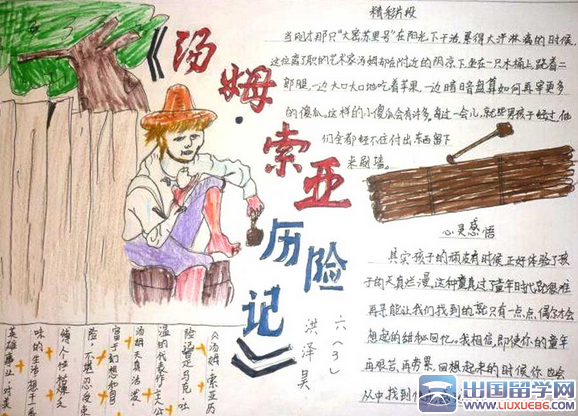 《汤姆·索亚历险记》
六(3)
洪泽昊
精彩片段
当刚才那只“大密苏里号”在阳光下干活,累得大汗淋漓的时候,
这位离了职的艺术家汤姆却在附近的阴凉下坐在一只木桶上,跷着二
郎腿,一边大口大口地吃着苹果,一边暗暗盘算如何再宰更多
的傻瓜。这样的小傻瓜会有许多。每过一会儿,就些男孩子经过,他
们全都经不住付出东西留下
来刷墙。
心灵感悟
其实孩子的顽皮有时候正好体验了孩
子的天真烂漫。这种童真过了童年时代就很难
再寻,能让我们找到的就只有一点点,偶尔才会
想起的甜秘回忆。我相信,即使你的童年
再艰苦,再劳累,回想起来的时候你也会
从中找到
《汤姆·索亚历
险记》是马克·吐
温的代表作,主人公
汤姆天真活泼
富于幻想和冒
险,不堪忍受束
缚个性枯燥乏
味的生活,想干一
英雄事业
出国留学网
www.liuxue86.com